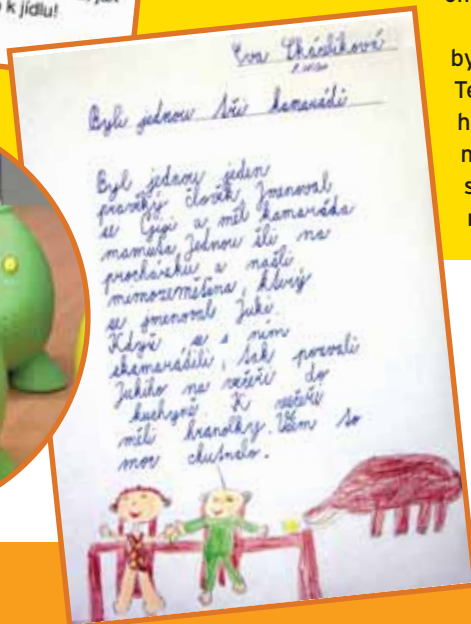 k jídlu!
Eva
Byli jednou tři kamarádi
Byl jednou jeden
pravěký člověk Jmenoval
se Gigi a měl kamaráda
mamuta Jednou šli na
procházku a našli
mimozemšťana, který
se jmenoval Juki.
Když se s ním
skamarádili, tak pozvali
Jukiho na večeři do
kuchyně K večeři
měli hranolky. Všem to
moc chutnalo.
by